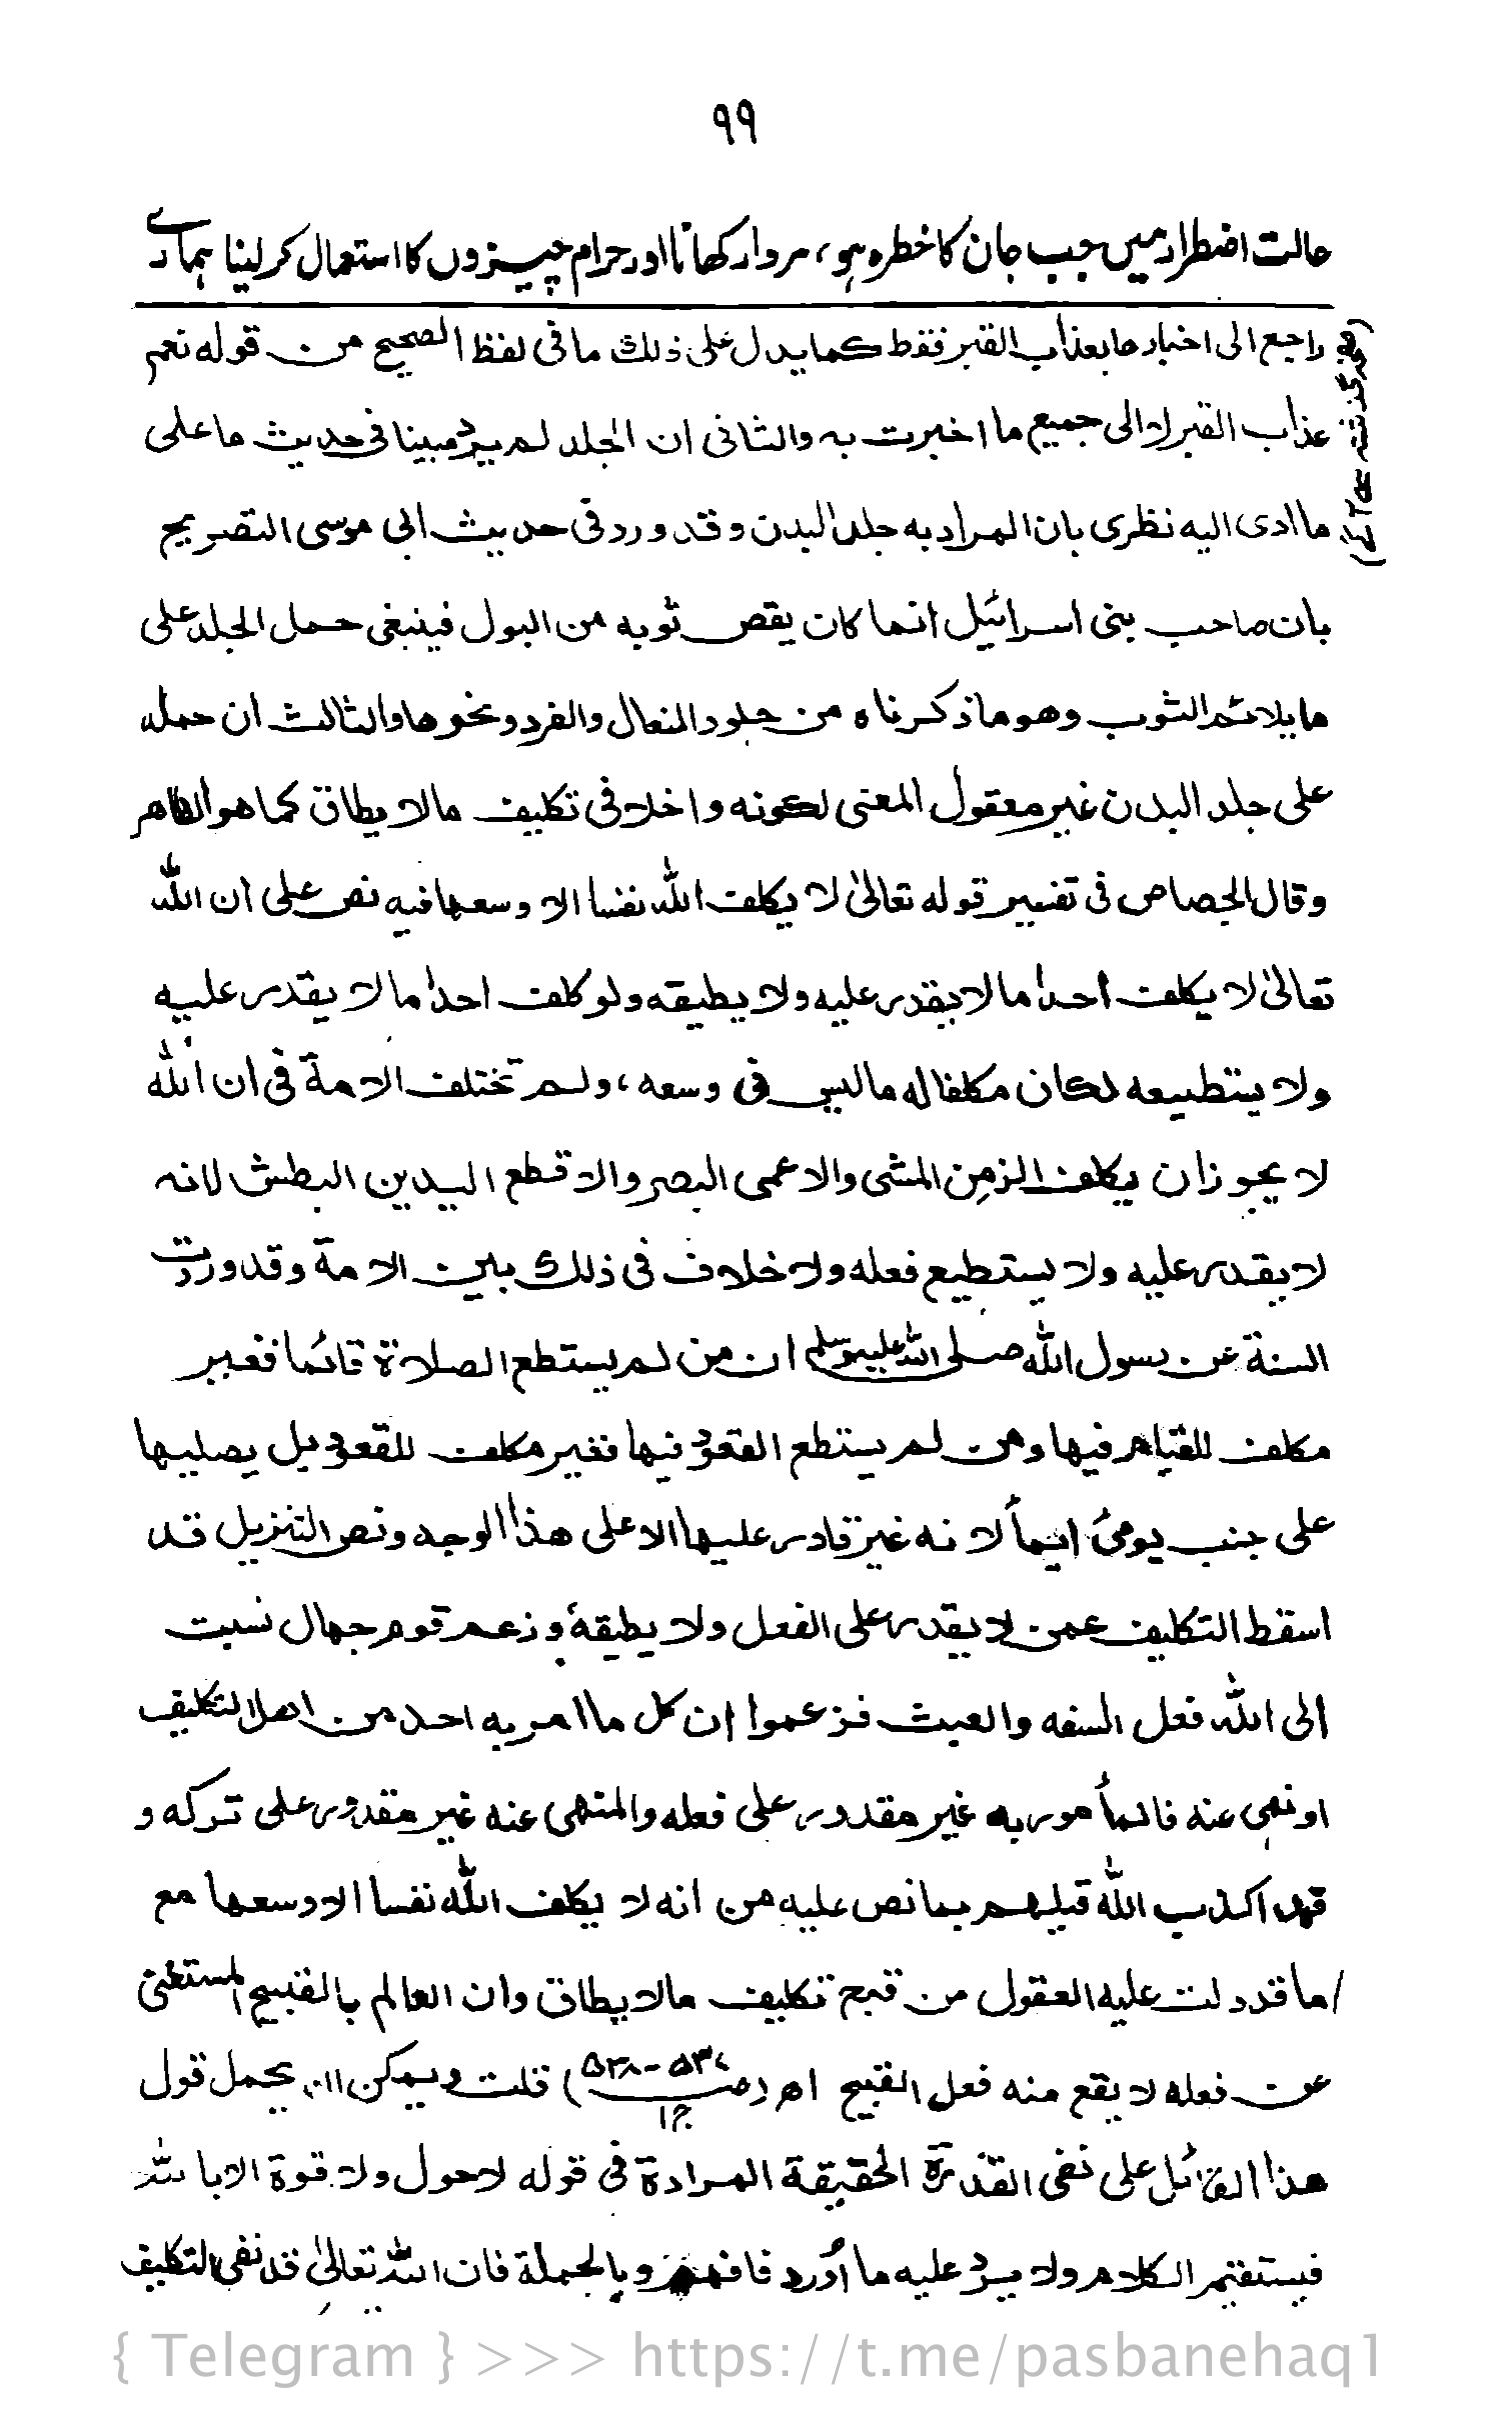 ۹۹
حالت اضطرار میں جب جان کا خطرہ ہو، مردار کھانا اور حرام چیزوں کا استعمال کر لینا ہمارے
راجع الى اخبارها بعذاب القبر فقط كما يدل على ذلك ما فى لفظ الصحيح من قوله نعم
عذاب القبر لا الى جميع ما اخبرت به والثانى ان الجلد لم يرد مبينا فى حديث ما على
ما ادى اليه نظرى بان المراد به جلد البدن وقد ورد فى حديث ابى موسى التصريح
بان صاحب بنى اسرائيل انما كان يقص ثوبه من البول فينبغى حمل الجلد على
ما يلائم الثوب وهو ما ذكرناه من جلود النعال والفرد ونحوها والثالث ان حمله
على جلد البدن غير معقول المعنى لكونه داخلا فى تكليف مالا يطاق كما هو الظاهر
وقال الجصاص فى تفسير قوله تعالىٰ لا يكلف الله نفسا الا وسعها فيه نص على ان الله
تعالىٰ لا يكلف احدا ما لا يقدر عليه ولا يطيقه ولو كلف احدا ما لا يقدر عليه
ولا يستطيعه لكان مكلفا له ما ليس فى وسعه، ولم تختلف الامة فى ان الله
لا يجوز ان يكلف الزمِن المشى والاعمى البصر والاقطع اليدين البطش لانه
لا يقدر عليه ولا يستطيع فعله ولا خلاف فى ذلك بين الامة وقد وردت
السنة عن رسول الله صلى الله عليه وسلم ان من لم يستطع الصلاة قائما فغير
مكلف للقيام فيها ومن لم يستطع القعود فيها فغير مكلف للقعود بل يصليها
على جنب يومئ ايماً لانه غير قادر عليها الا على هذا الوجه ونص التنزيل قد
اسقط التكليف عمن لا يقدر على الفعل ولا يطيقه وزعم قوم جهال نسبت
الى الله فعل السفه والعبث فزعموا ان كل ما امر به احد من اهل التكليف
او نهى عنه فالمأمور به غير مقدور على فعله والمنهى عنه غير مقدور على تركه و
قد اكذب الله قيلهم بما نص عليه من انه لا يكلف الله نفسا الا وسعها مع
ما قد دلت عليه العقول من قبح تكليف مالا يطاق وان العالم بالقبيح المستغنى
عن فعله لا يقع منه فعل القبيح اھ (ص ۵۳۷-۵۳۸ ج ۱) قلت ويمكن ان يحمل قول
هذا القائل على نفى القدرة الحقيقة المرادة فى قوله لاحول ولا قوة الا بالله
فيستقيم الكلام ولا يرد عليه ما اُورد فافهم وبالجملة فان الله تعالىٰ قد نفى التكليف
{ Telegram } >>> https://t.me/pasbanehaq1